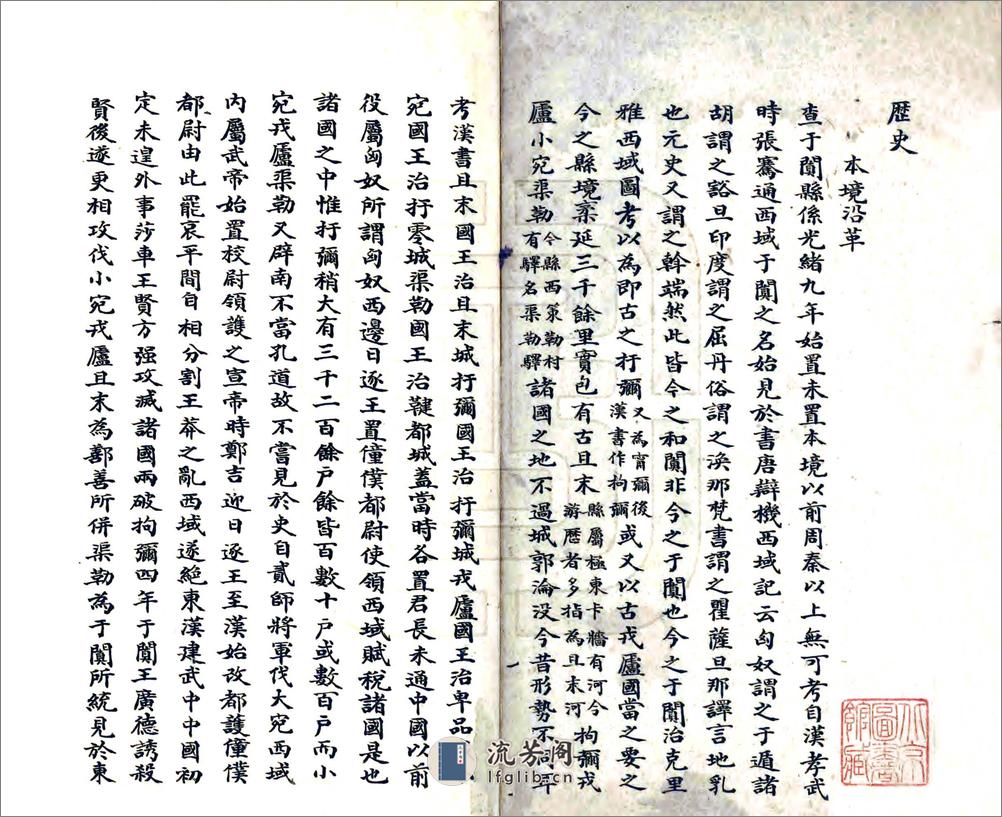 歴史
本境沿革
查于闐縣係光緒九年始置未置本境以前周秦以上無可考自漢孝武
時張騫通西域于闐之名始見於書唐辯機西域記云匈奴謂之于遁諸
胡謂之豁旦印度謂之屈丹俗謂之渙那梵書謂之瞿薩旦那譯言地乳
也元史又謂之斡端然此皆今之和闐非今之于闐也今之于闐治克里
雅西域圖考以為即古之扜彌又為甯彌後漢書作拘彌或又以古戎廬國當之要之
今之縣境袤延三千餘里實包有古且末縣屬極東卡牆有河今游歴者多指為且末河拘彌戎
廬小宛渠勒今縣西策勒村有驛名渠勒驛諸國之地不過城郭淪没今昔形勢不同耳
考漢書且末國王治且末城扜彌國王治扜彌城戎廬國王治卑品
宛國王治扜零城渠勒國王治鞬都城蓋當時各置君長未通中國以前
役屬匈奴所謂匈奴西邊日逐王置僮僕都尉使領西域賦稅諸國是也
諸國之中惟扜彌稍大有三千二百餘户餘皆百數十户或數百户而小
宛戎廬渠勒又辟南不當孔道故不嘗見於史自貳師將軍伐大宛西域
内屬武帝始置校尉領護之宣帝時鄭吉迎日逐王至漢始改都護僮僕
都尉由此罷哀平間自相分割王莽之亂西域遂絶東漢建武中中國初
定未遑外事莎車王賢方强攻滅諸國兩破拘彌四年于闐王廣德誘殺
賢後遂更相攻伐小宛戎廬且末為鄯善所併渠勒為于闐所統見於東
流芳閣
lfglib.cn